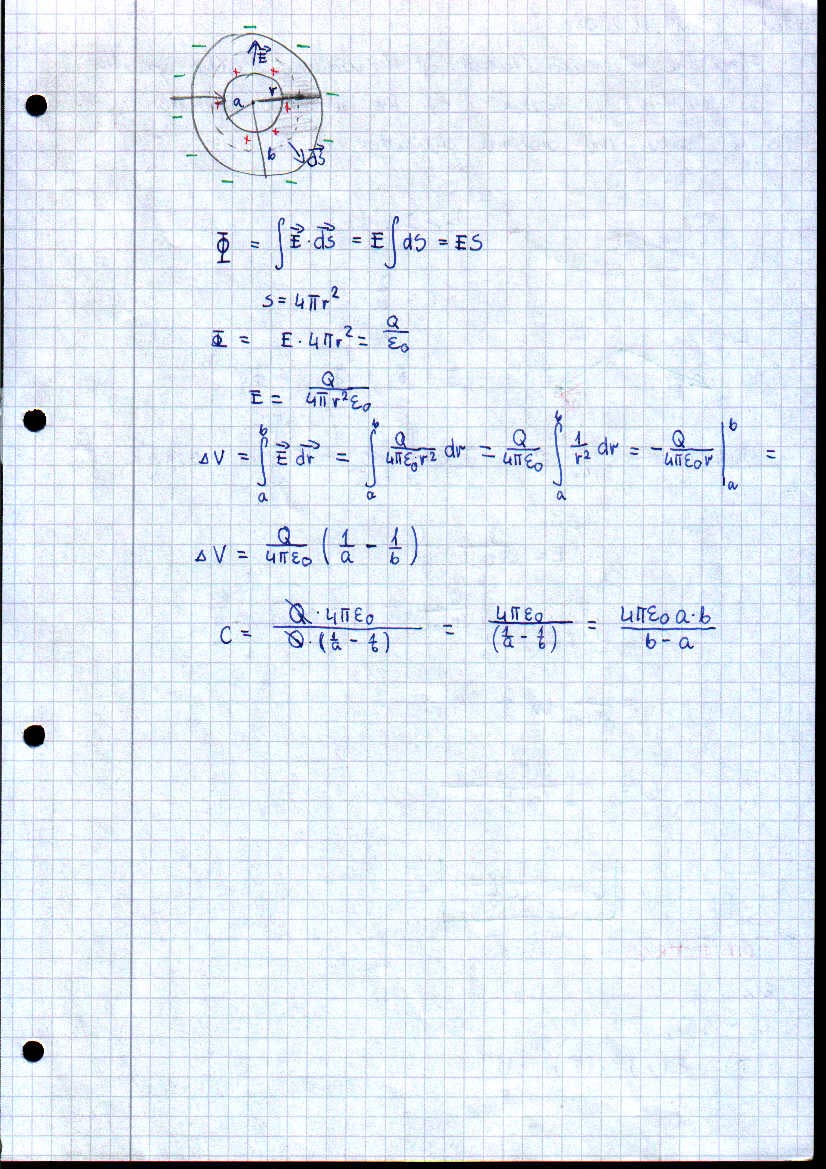 E⃗
a r
b dS⃗
Φ = ∫ E⃗ · dS⃗ = E ∫ dS = ES
S = 4πr²
Φ = E · 4πr² = Q/ε₀
E = Q/(4πr²ε₀)
ΔV = ∫ₐᵇ E⃗ dr⃗ = ∫ₐᵇ Q/(4πε₀r²) dr = Q/(4πε₀) ∫ₐᵇ 1/r² dr = -Q/(4πε₀r) |ₐᵇ =
ΔV = Q/(4πε₀) (1/a - 1/b)
C = Q · 4πε₀/(Q · (1/a - 1/b)) = 4πε₀/(1/a - 1/b) = 4πε₀ a·b/(b - a)